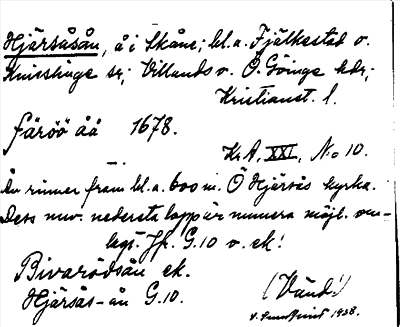 Hjärsåsån, å i Skåne; bl.a. Fjälkestad o.
Knisslinge sr; Villands o. Ö. Göinge hdr;
Kristianst. l.
färöö åå 1678.
K.A. XXI, No 10.
Ån rinner fram bl.a. 600 m. Ö Hjärsås kyrka.
Dess nuv. nedersta lopp är numera möjl. om-
lagt. Jfr. G.10 o. ek!
Bivarödsån ek.
Hjärsås-ån G.10.
(Vänd!)
1938.